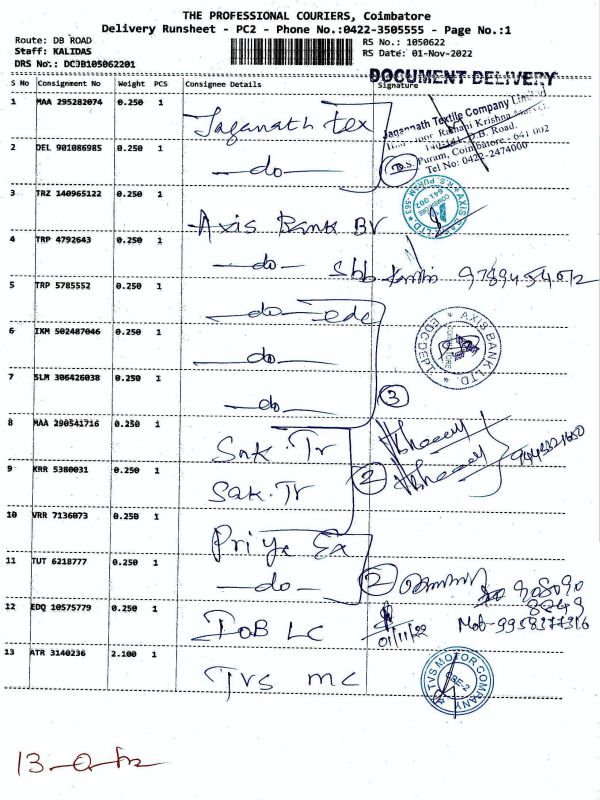 THE PROFESSIONAL COURIERS, Coimbatore
Delivery Runsheet - PC2 - Phone No.:0422-3505555 - Page No.:1
Route: DB ROAD
Staff: KALIDAS
DRS No.: DCJB105062201
RS No.: 1050622
RS Date: 01-Nov-2022
DOCUMENT DELIVERY
S No Consignment No Weight PCS Consignee Details Signature
1 MAA 295282074 0.250 1 Jaganath tex
Jagannath Textile Company Limited
Krishna
D.B. Road,
R.S. Puram, Coimbatore - 641 002
Tel No: 0422-2474000
2 DEL 901086985 0.250 1 —do—
3 TRZ 140965122 0.250 1 Axis Bank Br
4 TRP 4792643 0.250 1 —do—
5 TRP 5785552 0.250 1 —do—
6 IXM 502487046 0.250 1 —do—
AXIS BANK LTD.
7 SLM 306426038 0.250 1 —do—
3
8 MAA 290541716 0.250 1 Snk. Tr
9 KRR 5380031 0.250 1 Sak. Tr
2
10 VRR 7136073 0.250 1 Priya Ex
11 TUT 6218777 0.250 1 —do—
2
12 EDQ 10575779 0.250 1 IOB LC
01/11/22
Mob-9958377316
13 ATR 3140236 2.100 1 TVS MC
TVS MOTOR COMPANY
CBE-2